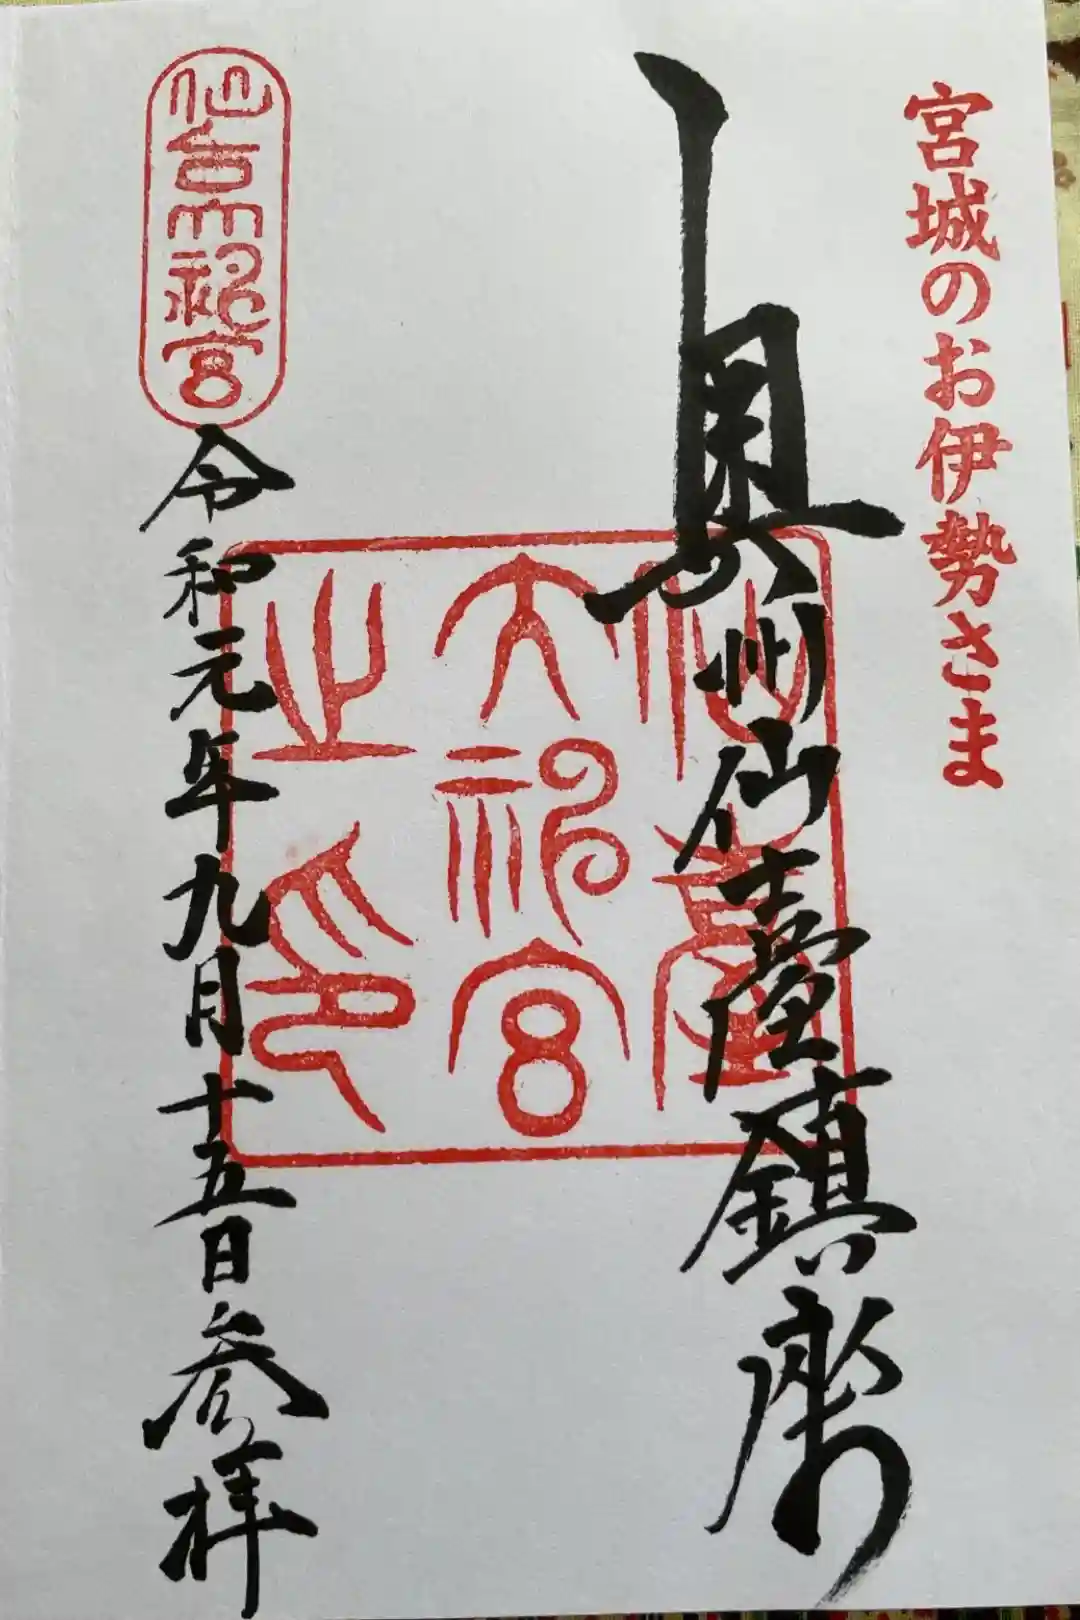 宮城のお伊勢さま
奥州仙臺鎮座
仙臺大神宮之印
仙台大神宮
令和元年九月十五日参拝